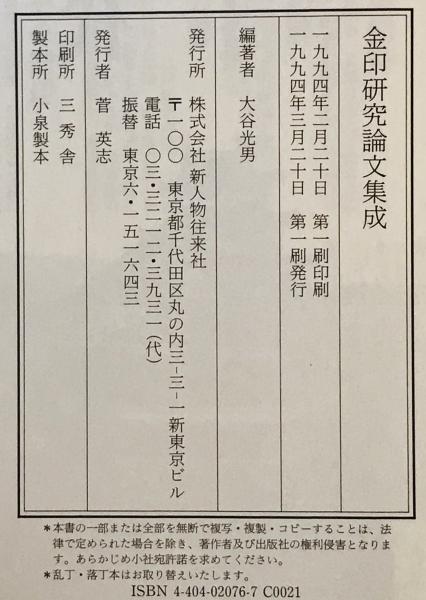 金印研究論文集成
一九九四年二月二十日　第一刷印刷
一九九四年三月二十日　第一刷発行
編著者　大谷光男
発行所　株式会社 新人物往来社
〒一〇〇　東京都千代田区丸の内三−三−一新東京ビル
電話　〇三・三二一二・三九三一（代）
振替　東京六・一五一六四三
発行者　菅　英志
印刷所　三秀舎
製本所　小泉製本
＊本書の一部または全部を無断で複写・複製・コピーすることは、法
律で定められた場合を除き、著作者及び出版社の権利侵害となりま
す。あらかじめ小社宛許諾を求めてください。
＊乱丁・落丁本はお取り替えいたします。
ISBN 4-404-02076-7 C0021